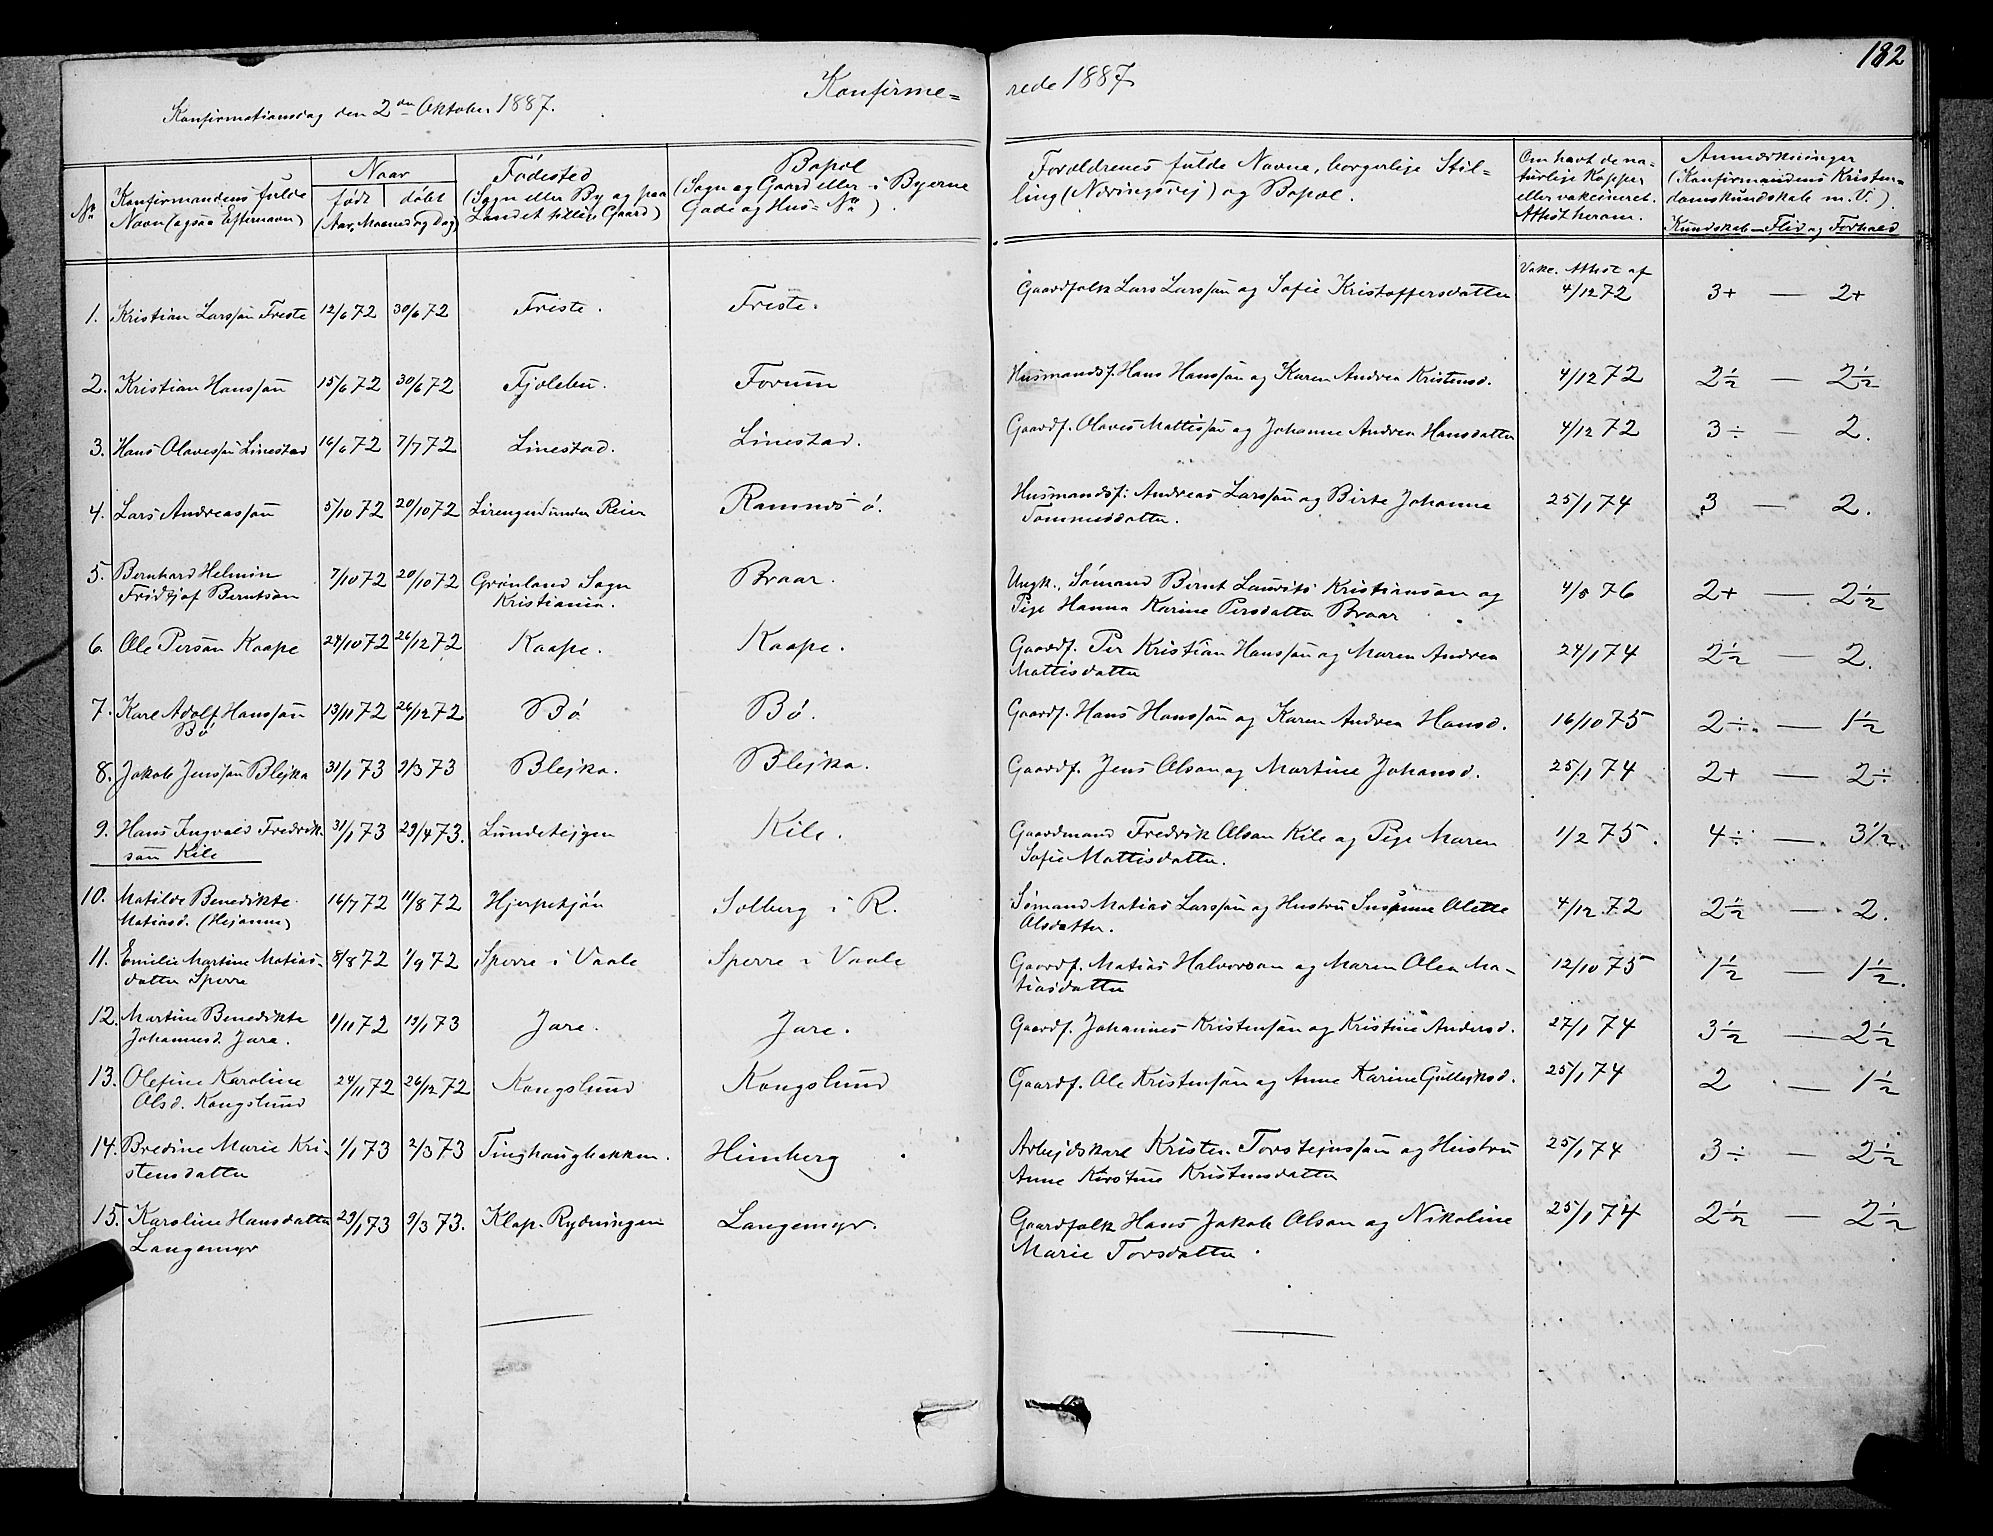 182
Konfirme= rede 1887
Konfirmationsdag den 2den Oktober 1887.
No
Konfirmandens fulde
Navn (ogsaa Efternavn)
Naar
født døbt
(Aar, Maaned og Dag)
Fødested
(Sogn eller By og paa
Landet tillige Gaard)
Bopæl
(Sogn og Gaard eller i Byerne
Gade og Hus= No)
Forældrenes fulde Navne, borgerlige Stil-
ling (Næringsvej) og Bopæl.
Om havt de na-
turlige Kopper
eller vakcineret.
Attest herom.
Anmærkninger
(Konfirmandens Kristen-
domskundskab m. V.)
Kundskab — Flid og Forhold
Vakc. Attest af
1. Kristian Larssøn Freste 12/6 72 30/6 72 Freste. Freste. Gaardfolk Lars Larssøn og Sofie Kristoffersdatter 4/12 72 3+ — 2+
2. Kristian Hanssøn 15/6 72 30/6 72 Fjølebu. Forum Husmandsf. Hans Hanssøn og Karen Andrea Kristensd. 4/12 72 2½ — 2½
3. Hans Olavessøn Linestad 16/6 72 7/7 72 Linestad. Linestad. Gaardf. Olaves Mattissøn og Johanne Andrea Hansdatter 4/12 72 3÷ — 2.
4. Lars Andreassøn 5/10 72 20/10 72 Lirengen under Rein Ramnesø. Husmandsf: Andreas Larssøn og Birte Johanne 25/1 74 3 — 2.
Tommesdatter.
5. Bernhard Helmin 7/10 72 20/10 72 Grønland Sogn Braar. Ungk., Sømand Bernt Laurits Kristiansøn og 4/5 76 2+ — 2½
Fridtjof Berntsøn Kristiania. Pige Hanna Karine Persdatter Braar
6. Ole Persøn Kaape 24/10 72 26/12 72 Kaape. Kaape. Gaardf. Per Kristian Hanssøn og Maren Andrea 24/1 74 2½ — 2.
Mattisdatter
7. Karl Adolf Hanssøn 13/11 72 26/12 72 Bø Bø. Gaardf. Hans Hanssøn og Karen Andrea Hansd. 16/10 75 2÷ — 1½
Bø
8. Jakob Jenssøn Blejka 31/1 73 2/3 73 Blejka. Blejka. Gaardf. Jens Olsøn og Martine Johansd. 25/1 74 2+ — 2÷
9. Hans Ingvald Fredrik- 31/1 73 29/4 73. Lundetejgen Kile. Gaardmand Fredrik Olsøn Kile og Pige Maren 1/2 75. 4÷ — 3½.
søn Kile Sofie Mattisdatter.
10. Matilde Benedikte 16/7 72 11/8 72 Hjerpetjøn Solberg i R. Sømand Matias Larssøn og Hustru Susanne Olette 4/12 72 2½ — 2.
Matiasd. (Hejanne) Olsdatter.
11. Emilie Martine Matias- 8/8 72 1/9 72 Sperre i Vaale Sperre i Vaale Gaardf. Matias Halvorsøn og Maren Olea Ma- 12/10 75 1½ — 1½.
datter Sperre tiasdatter
12. Martine Benedikte 9/11 72 19/1 73 Jare. Jare. Gaardf. Johannes Kristensøn og Kristine Andersd. 27/1 74 3½ — 2½
Johannesd. Jare.
13. Olefine Karoline 24/11 72 26/12 72 Kongslund Kongslund Gaardf. Ole Kristensøn og Anne Karine Gulleiksd. 25/1 74 2 — 1½
Olsd. Kongslund
14. Bredine Marie Kri- 1/1 73 2/3 73 Tinghaugbakken. Himberg Arbejdskarl Kristen Torstejnssøn og Hustru 25/1 74 3÷ — 2½
stensdatter Anne Kirstine Kristensdatter
15. Karoline Hansdatter 29/1 73 9/3 73. Klop. Rydningen Langemyr. Gaardfolk Hans Jakob Olsøn og Nikoline 25/1 74 2½ — 2½
Langemyr Marie Torsdatter.